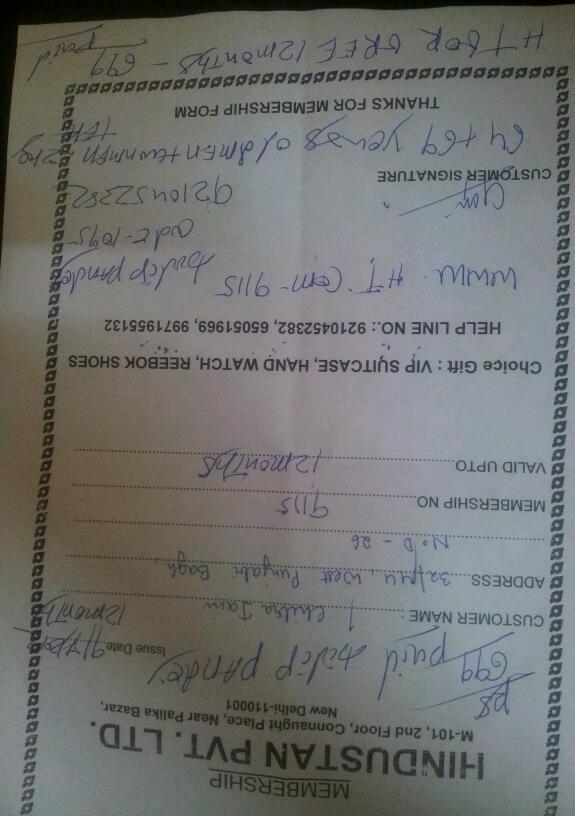 MEMBERSHIP
HINDUSTAN PVT. LTD.
M-101, 2nd Floor, Connaught Place, Near Palika Bazar,
New Delhi-110001
699 paid dilip pandey
Issue Date 9/7/
12 months
CUSTOMER NAME : Chitra Jain
ADDRESS 32/44, West Punjabi Bagh,
N.D - 26
MEMBERSHIP NO. 9115
VALID UPTO 12 months
Choice Gift : VIP SUITCASE, HAND WATCH, REEBOK SHOES
HELP LINE NO.: 9210452382, 65051969, 9971955132
www. HT. Com - 9115 dilip pandey
code - 1095
9210452382
CUSTOMER SIGNATURE
64 + 69 years old
THANKS FOR MEMBERSHIP FORM
HT FREE 12 months - 699 paid